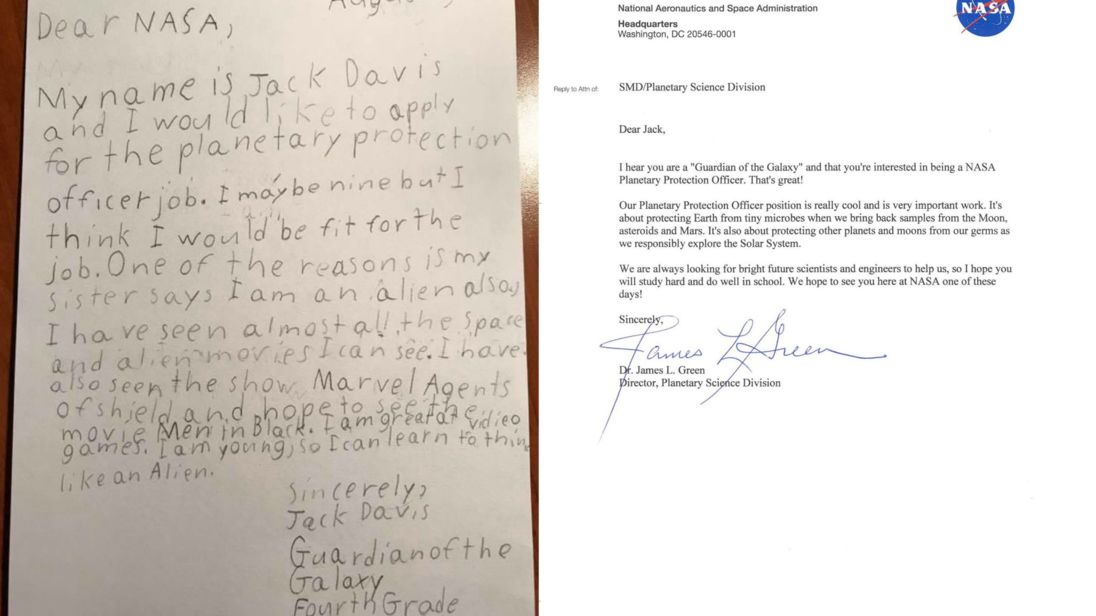 Dear NASA,
My name is Jack Davis
and I would like to apply
for the planetary protection
officer job. I may be nine but I
think I would be fit for the
job. One of the reasons is my
sister says I am an alien also,
I have seen almost all the space
and alien movies I can see. I have
also seen the show Marvel Agents
of shield and hope to see the
movie Men in Black. I am great at vidieo
games. I am young, so I can learn to thin
like an Alien.
Sincerely,
Jack Davis
Guardian of the
Galaxy
Fourth Grade
National Aeronautics and Space Administration
Headquarters
Washington, DC 20546-0001
NASA
Reply to Attn of:
SMD/Planetary Science Division
Dear Jack,
I hear you are a "Guardian of the Galaxy" and that you're interested in being a NASA
Planetary Protection Officer. That's great!
Our Planetary Protection Officer position is really cool and is very important work. It's
about protecting Earth from tiny microbes when we bring back samples from the Moon,
asteroids and Mars. It's also about protecting other planets and moons from our germs as
we responsibly explore the Solar System.
We are always looking for bright future scientists and engineers to help us, so I hope you
will study hard and do well in school. We hope to see you here at NASA one of these
days!
Sincerely,
James L Green
Dr. James L. Green
Director, Planetary Science Division